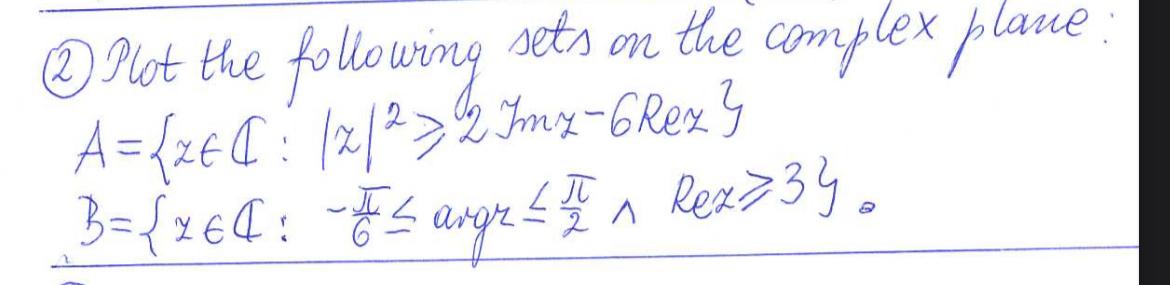 ② Plot the following sets on the complex plane:
A = {z ∈ ℂ : |z|² ≥ 2 Im z - 6 Re z}
B = {z ∈ ℂ : -π/6 ≤ arg z ≤ π/2 ∧ Re z ≥ 3}.